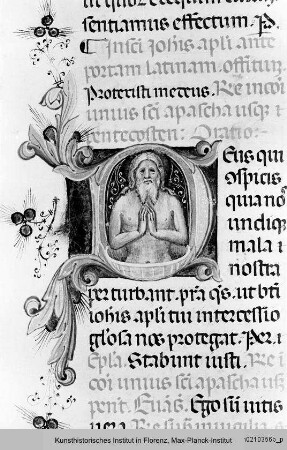 sentiamus effectum. P.
In sci Johis apli ante
portam latinam. offitium.
Protexisti me deus. Re in coi
unius sci a pascha usque i
pentecosten. Oratio.
Deus qui
9spicis
quia no
undique
mala i
nostra
perturbant. pra qs. ut bti
iohis apli tui intercessio
gl'osa nos protegat. Per. i
Epla. Stabunt iusti. Re i
coi unius sci a pascha usq
pent. Evag. Ego sum vitis
vera. Re
Kunsthistorisches Institut in Florenz, Max-Planck-Institut